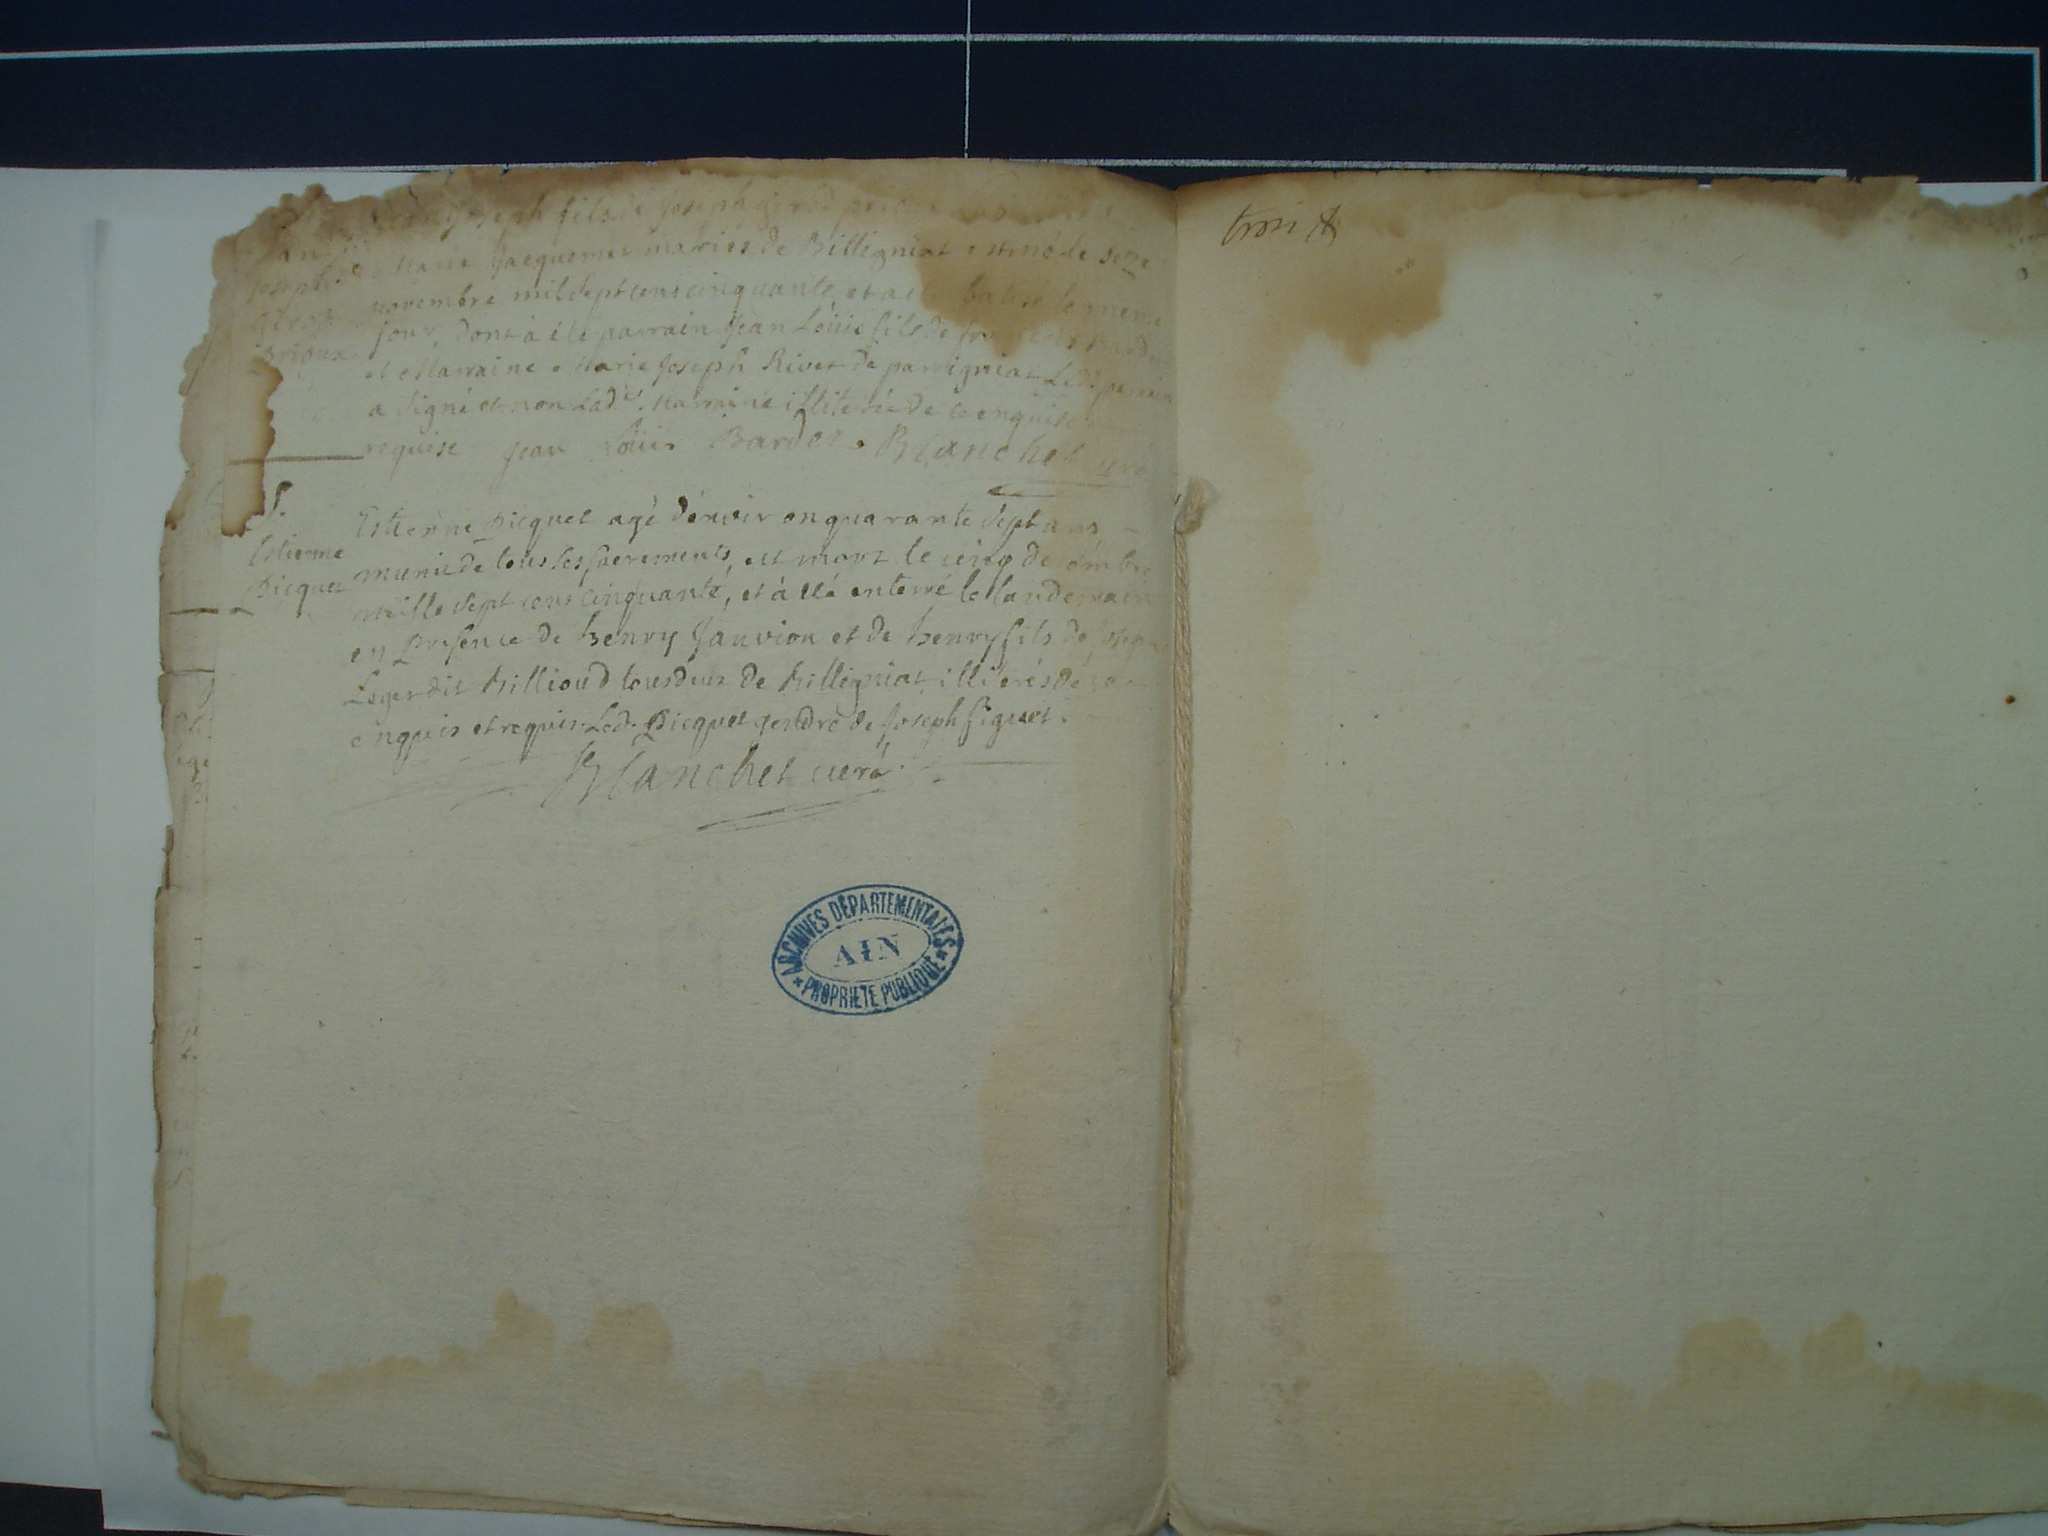 Joseph fils de Joseph
Marie Jacquemet mariés de Billigniat est né le seize
novembre mil sept cens cinquante et a été batisé le meme
jour, dont à été parrain Jean Loüis fils de
et Marraine Marie Joseph Rivet de parvigniat Led. parrain
a signé et non Lad. Marraine illiterée de ce enquise
requise Jean Loüis Bardet . Blanchet curé
Joseph
S.
Estienne
Picquet
Estienne Picquet agé d'environ quarante sept ans
munis de tous les sacrements, est mort le cinq décembre
mille sept cens cinquante, et à été enterré le landemain
en presence de henry Jauvion et de henry fils de Joseph
Leger dit billioud tous deux de billigniat illiterés de ce
enquis et requis. Led. Picquet gendre de Joseph figuet.
Blanchet curé
ARCHIVES DÉPARTEMENTALES
AIN
PROPRIÉTÉ PUBLIQUE